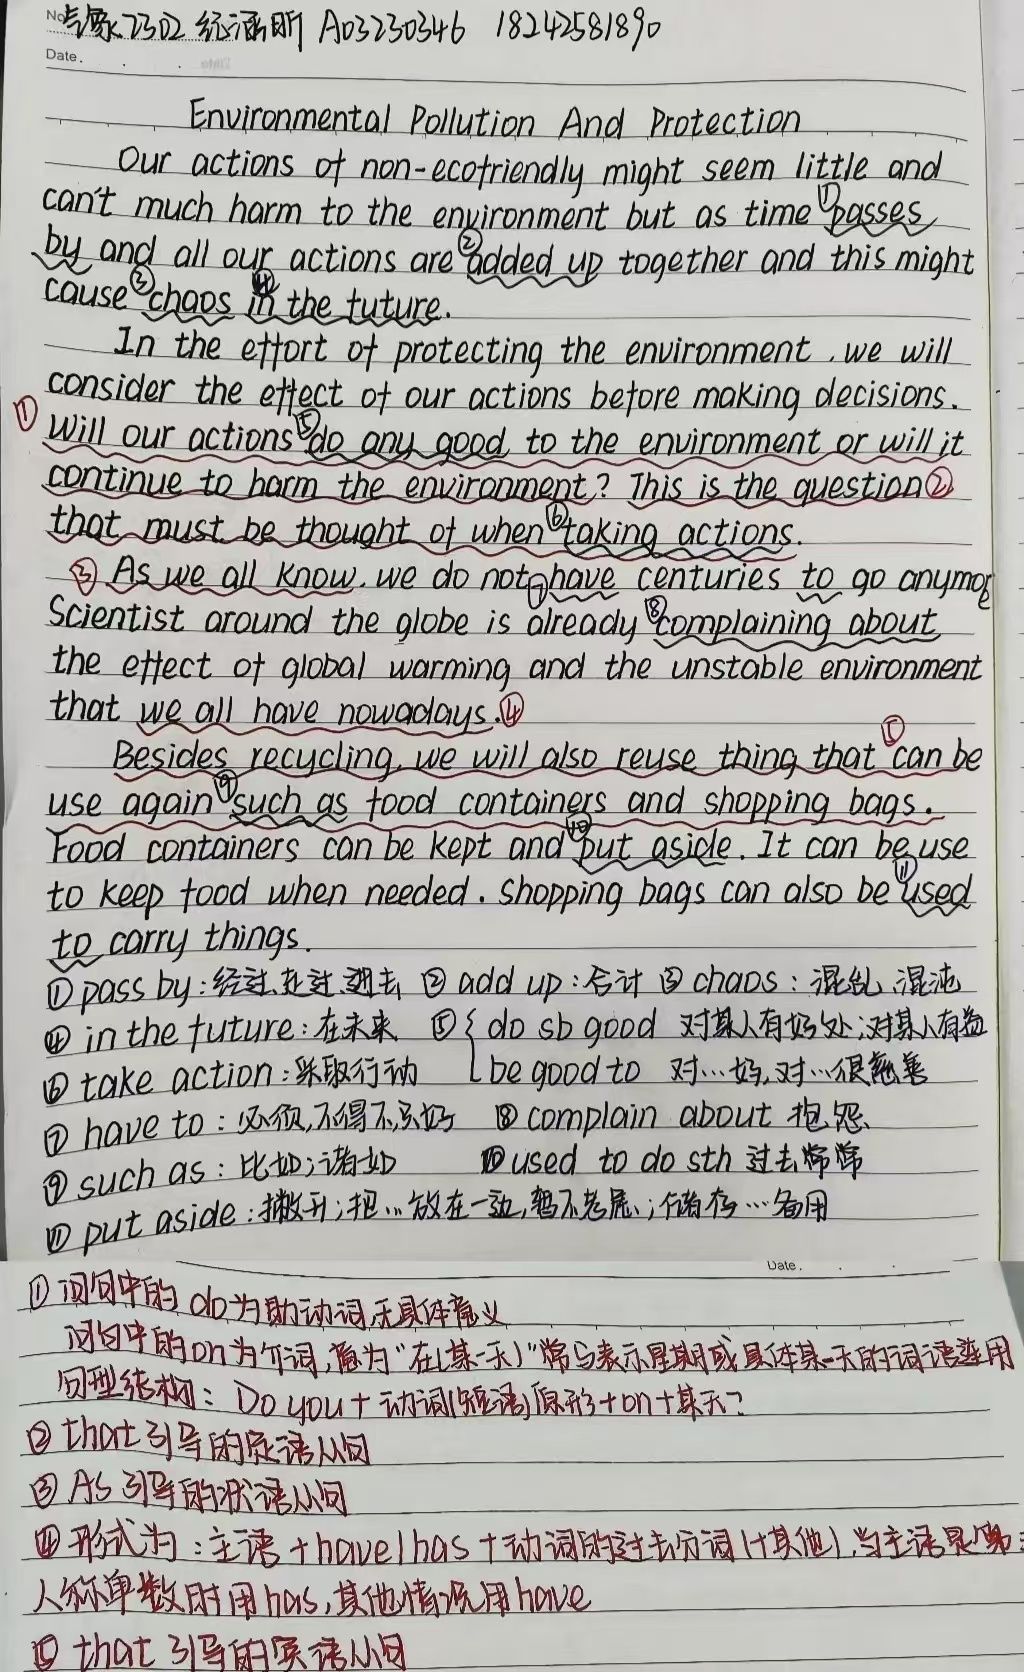 No 气象2302 纪涵昕 A03230346 18242581890
Date.
Environmental Pollution And Protection
Our actions of non-ecofriendly might seem little and
can't much harm to the environment but as time ①passes
by and all our actions are ②added up together and this might
cause ③chaos ④in the future.
In the effort of protecting the environment, we will
consider the effect of our actions before making decisions.
① Will our actions ⑤do any good to the environment or will it
continue to harm the environment? This is the question ②
that must be thought of when ⑥taking actions.
③ As we all know, we do not ⑦have centuries to go anymore
Scientist around the globe is already ⑧complaining about
the effect of global warming and the unstable environment
that we all have nowadays. ④
Besides recycling, we will also reuse thing that ⑤ can be
use again ⑨such as food containers and shopping bags.
Food containers can be kept and ⑩put aside. It can be use
to keep food when needed. Shopping bags can also be ⑪used
to carry things.
①pass by: 经过、走过、逝去 ② add up: 合计 ③ chaos: 混乱、混沌
④ in the future: 在未来 ⑤ { do sb good 对某人有好处;对某人有益
⑥ take action: 采取行动 be good to 对…好,对…很慈善
⑦ have to: 必须,不得不,只好 ⑧ complain about 抱怨
⑨ such as: 比如;诸如 ⑩ used to do sth 过去常常
⑪ put aside: 撇开;把…放在一边,暂不考虑;储存…备用
Date.
① 问句中的 do 为助动词,无具体意义
问句中的on为介词,意为"在(某一天)"常与表示星期或具体某一天的词语连用
句型结构: Do you + 动词(短语)原形+on+某天?
② that引导的定语从句
③ As 引导的状语从句
④ 形式为: 主语 + have/has + 动词的过去分词(+其他),当主语是第三
人称单数时用has,其他情况用have
⑤ that 引导的宾语从句